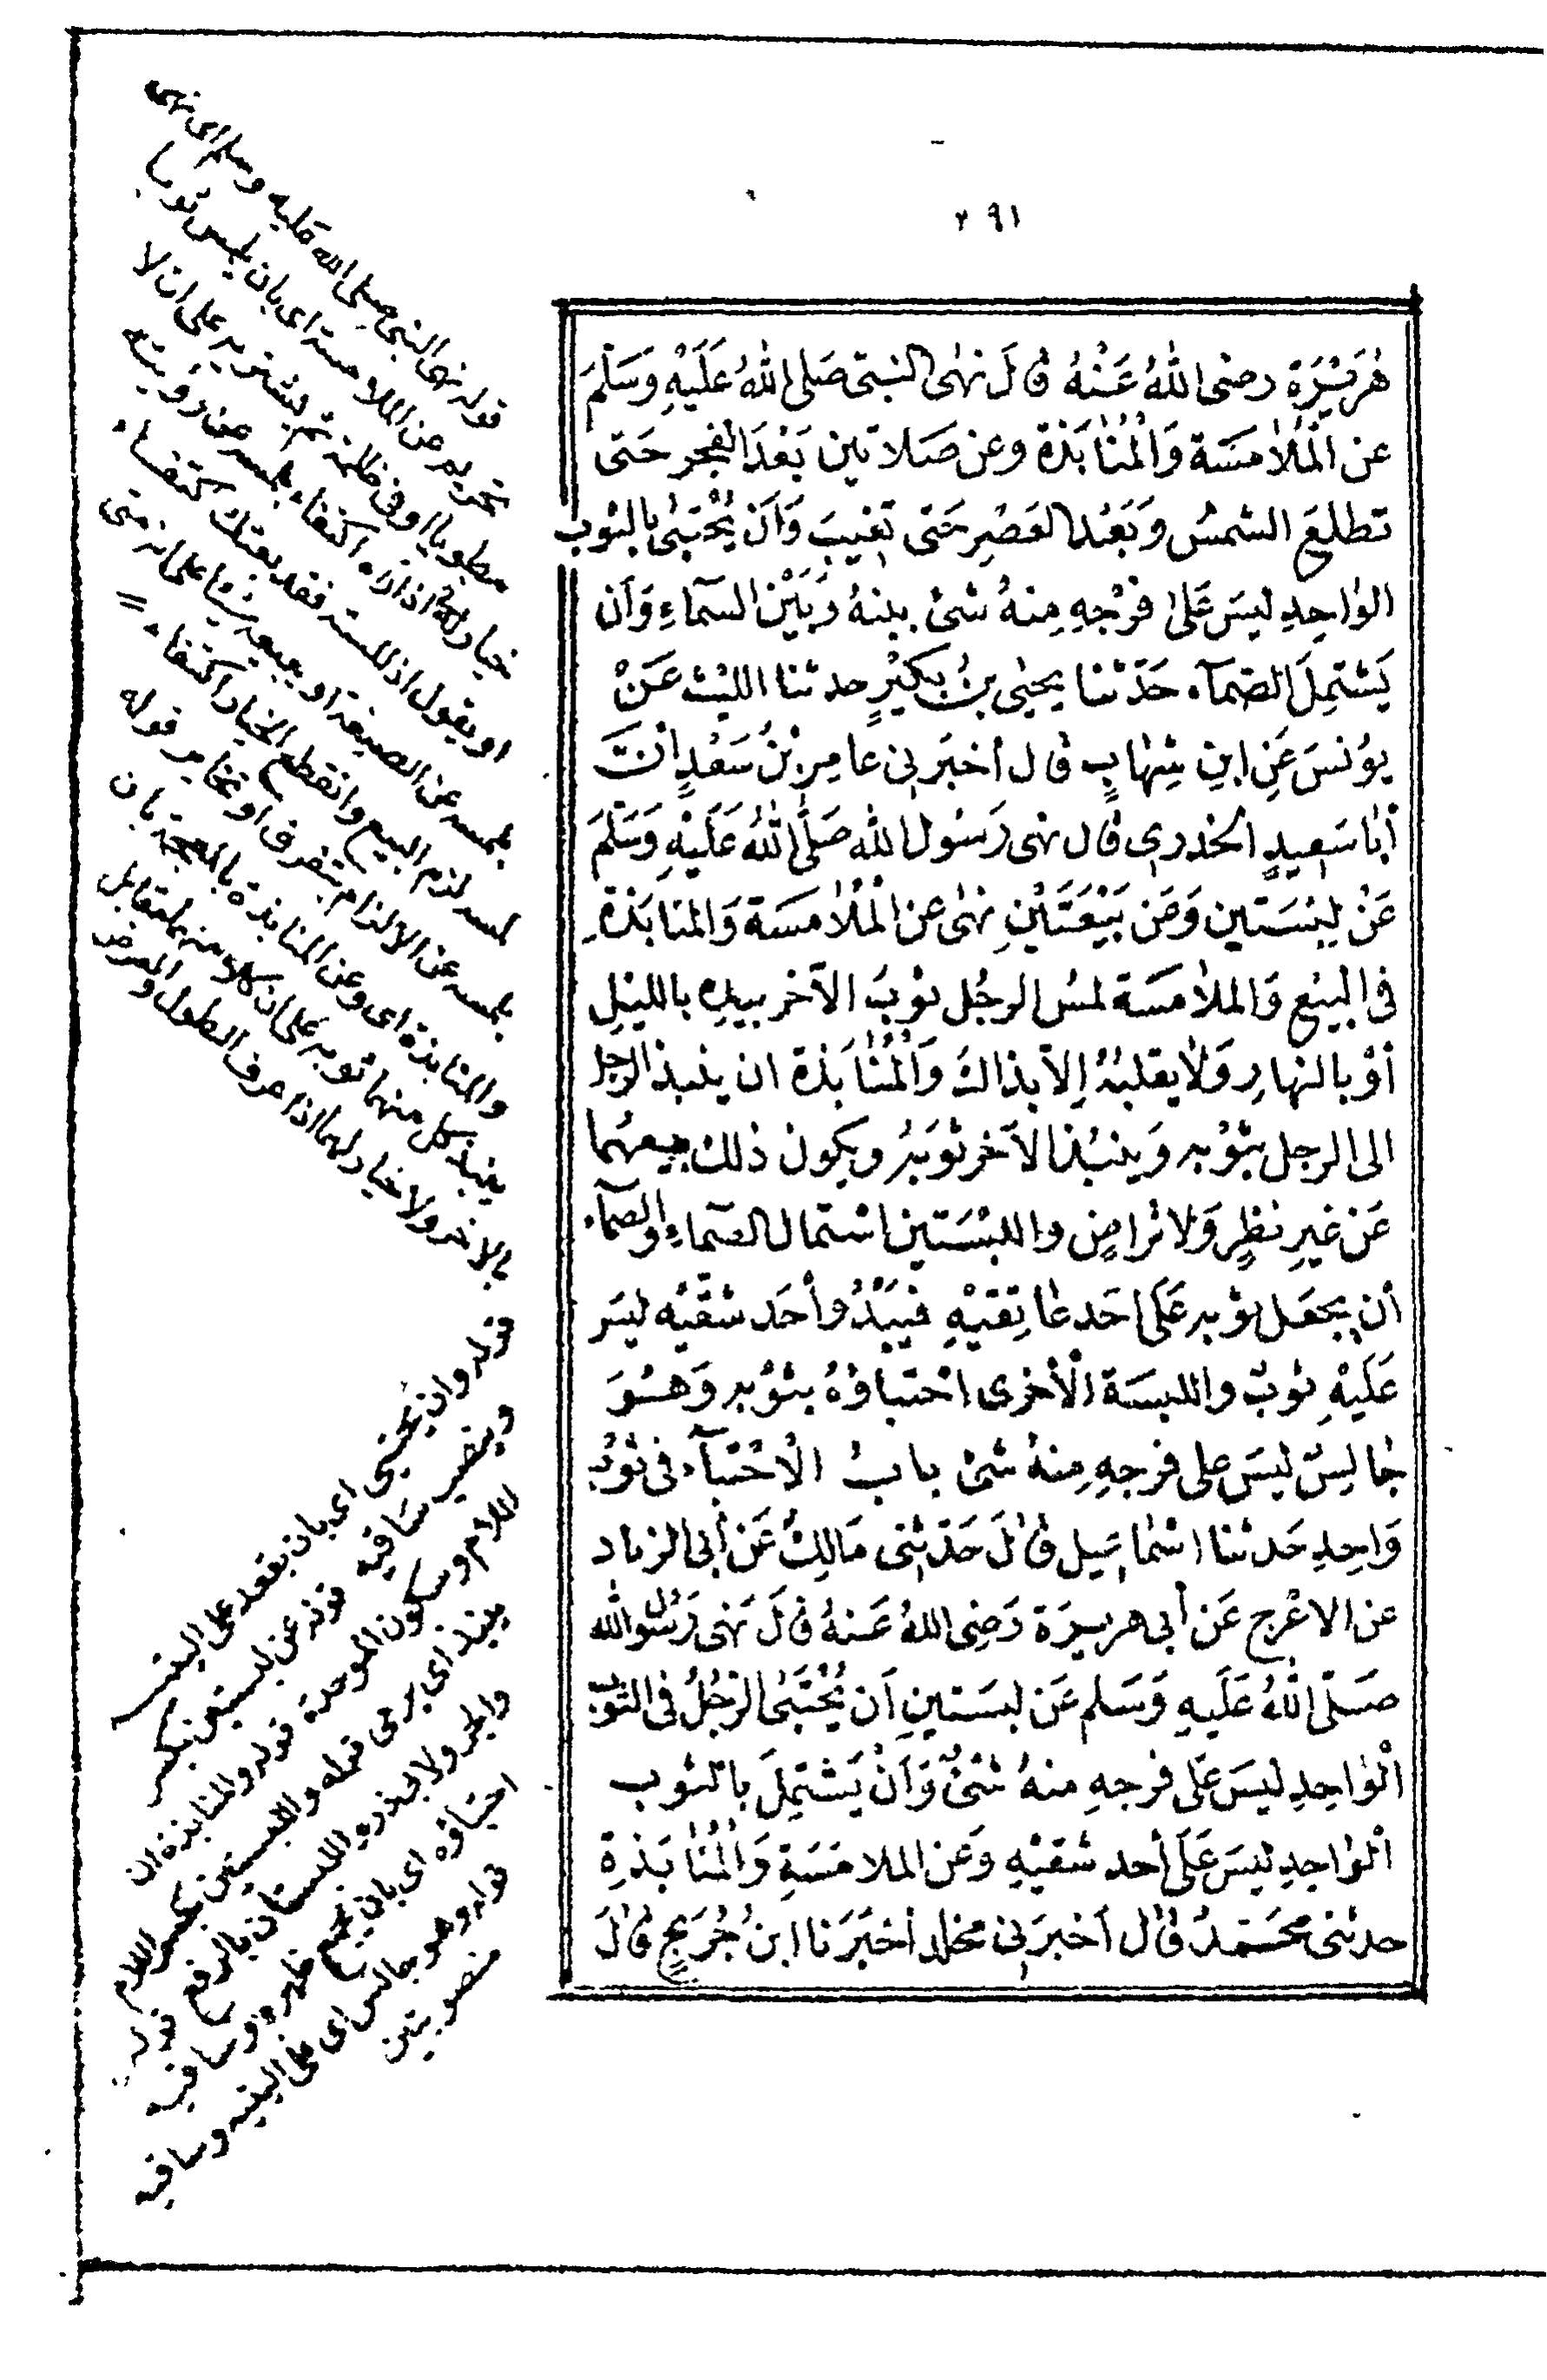 ٢٩١
هُرَيْرَة رضى اللهُ عَنْهُ قَالَ نهٰى النبّى صَلى اللهُ عَلَيْهِ وَسَلَّمَ
عن الْمُلاٰمَسَة وَالْمُنٰابَذة وعن صَلاتين بَعْدَ الفجر حَتى
تطلعَ الشمسُ وَبَعْدَ العَصْرِ حَتى تغيبَ وَاَن يُحْتَبىٰ بالثوب
الوٰاحِدِ ليسَ عَلىٰ فرْجِهِ مِنهُ شئ بينهُ وَبَيْنَ السمآءِ وَاَن
يَشتمِلَ الصَّمآء حَدّثنا يحيٰى بنُ بكَيْرٍ حدثنا الليث عَنْ
يوُنسَ عَنِ ابنِ شِهابٍ قال أخبَرَنى عامِر بْنُ سَعْدٍ اَنَّ
أبٰا سَعيدٍ الخدرى قال نهى رَسُول الله صَلَّى اللهُ عَلَيْهِ وَسَلَّمَ
عَنْ لِبْسَتين وَعَن بَيْعَتَيْنِ نهٰى عن الْمُلاٰمسَة وَالمنابَذة
فى البيْع وَالملاٰمَسَة لمسُ الرجُل ثوْبَ الآخر بيدِهِ بالليْلِ
أوْ بالنهارِ وَلاٰ يقلبُهُ إلاّ بذالكَ وَالْمُنٰابَذة ان ينبذ الرجل
الى الرجل بثوْبه وَينبُذ الآخر ثوْبَهُ ويكون ذلك بيعهُما
عَن غيرِ نظرٍ وَلا تراضٍ واللبْسَتين اشتمال الصَّماءِ والصمآء
أن يجعَل ثوْبه عَلىٰ احَد عٰاتِقيْهِ فيَبْدُو أحَد شقّيْه ليسَ
عَليْهِ ثوبٌ واللبسَة الْأخرى احْتباؤهُ بثوْبه وَهُوَ
جٰالِسٌ ليسَ على فرجِهِ مِنهُ شئ بابُ الاحْتبآء فى ثوْب
وَاحِدٍ حَدثنا اسْمٰاعيل قٰالَ حَدّثنى مَالِكٌ عَن أبى الزناد
عن الاعْرج عَن أبى هريرَة رَضِى اللهُ عَنهُ قالَ نَهى رَسُول الله
صَلّى اللهُ عَلَيهِ وَسَلم عَن لبسَتينِ اَن يُحْتَبىٰ الرّجُلُ فى الثوْب
الْوٰاحِدِ ليسَ عَلى فرجهِ منهُ شئٌ وَاَنْ يَشْتمِلَ بالثوب
الْوٰاحِدِ ليسَ عَلَى أحد شقيْهِ وَعَن الملامَسَةِ وَالْمُنٰابَذةِ
حدثنى محَمّدٌ قٰال أخبَرَنى مخلد أخبَرَنا ابنُ جُرَيجٍ قٰالَ
قوله نهى النبى صلى الله عليه وسلم اى نهى
تحريم عن الملامسة اى بان يلمس ثوبا
مطويا او فى ظلمة ثم يشتريه على ان لا
خيار له اذا رآه اكتفاء بلمسه عن رؤيته
او يقول اذا لمسته فقد بعتك اكتفاء
بلمسه عن الصيغة او يبيعه شيئا على انه متى
لمسه لزم البيع وانقطع الخيار اكتفاء
بلمسه عن الالزام بتفرق او تخاير قوله
والمنابذة اى وعن المنابذة بالمعجمة بان
ينبذ كل منهما ثوبه على ان كلا منهما مقابل
بالآخر ولا خيار لهما اذا عرف الطول والعرض
قوله وان يحتبى اى بان يقعد على اليتيه
وينصب ساقيه قوله عن لبستين بكسر
اللام وسكون الموحدة قوله والمنابذة ان
ينبذ اى يرمى قوله واللبستين بكسر اللام
والجر ولابى ذر واللبستان بالرفع قوله
احتباؤه اى بان يجمع ظهره وساقيه
قوله وهو جالس اى على اليتيه وساقيه
منصوبتين